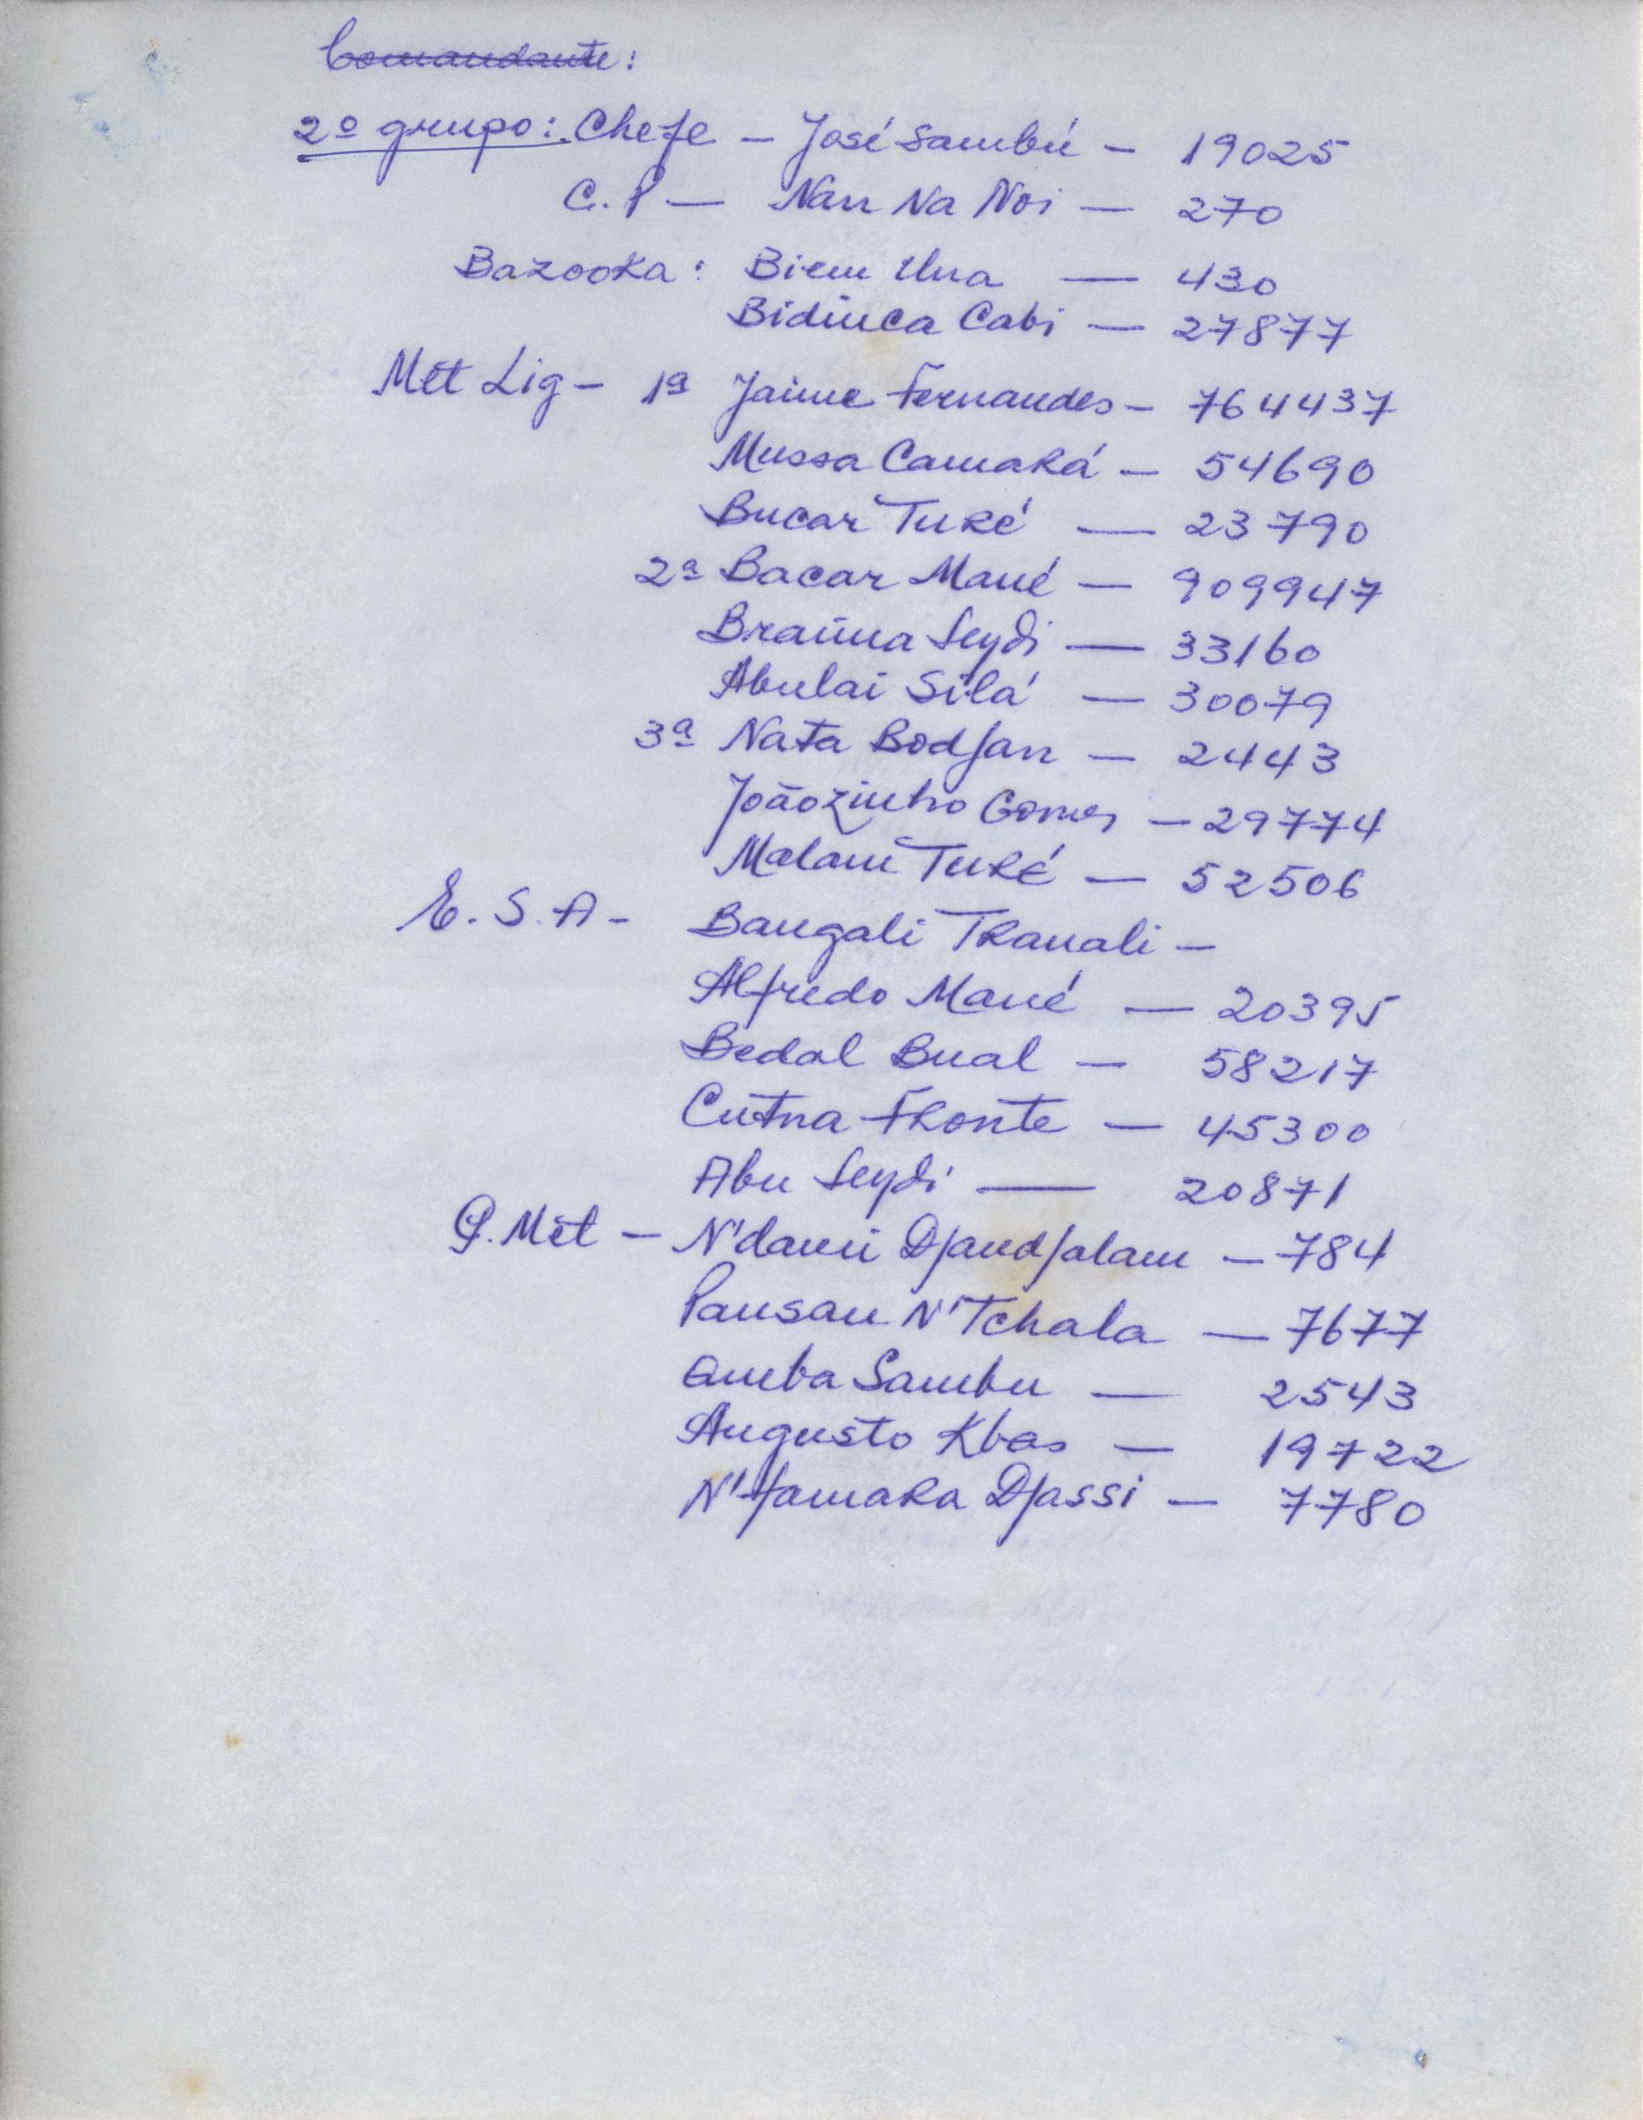 Comandante:
2º grupo: Chefe - José Sambú - 19025
C.P - Nan Na Noi - 270
Bazooka: Biem Una - 430
Bidiuca Cabi - 27877
Mêt Lig - 1ª Jaime Fernandes - 764437
Mussa Camará - 54690
Bucar Turé - 23790
2ª Bacar Mané - 909947
Braima Seydi - 33160
Abulai Silá - 30079
3ª Nata Bodjan - 2443
Joãozinho Gomes - 29774
Malam Turé - 52506
E.S.A - Bangali Tranali -
Alfredo Mané - 20395
Bedal Bual - 58217
Cutna Fronte - 45300
Abu Seydi - 20871
P. Mêt - N'dami Djandjalam - 784
Pansau N'Tchala - 7677
Queba Sambu - 2543
Augusto Kbas - 19722
N'famara Djassi - 7780